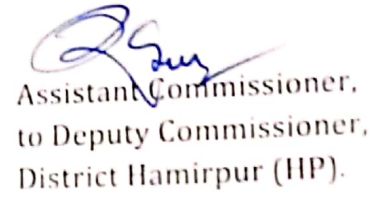 Assistant Commissioner,
to Deputy Commissioner,
District Hamirpur (HP).